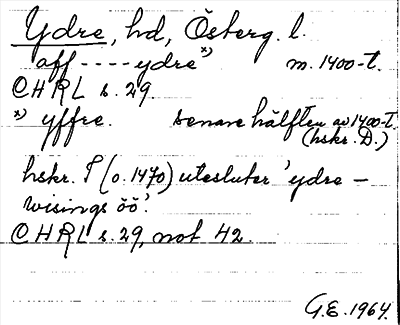 Ydre, hd, Österg. l.
aff ---- ydre x) m. 1400-t.
CHRL s. 29
x) yffre. senare hälften av 1400-t.
(hskr. D.)
hskr. (o. 1470) utesluter 'ydre –
wisings öö'.
CHRL s. 29, not 42.
G.E. 1964.